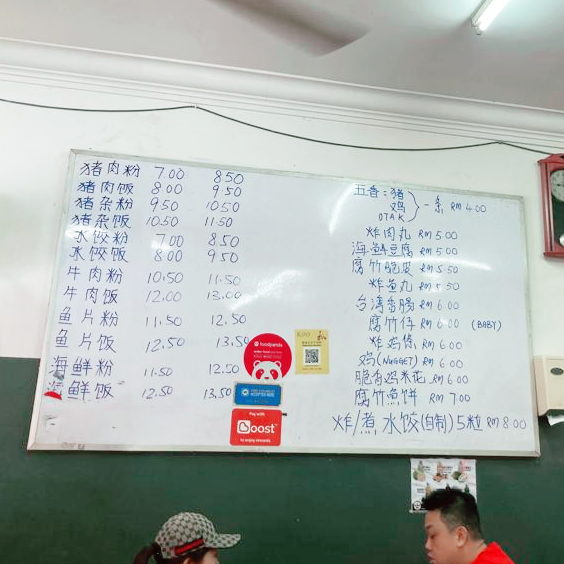 猪肉粉 7.00 8.50
猪肉饭 8.00 9.50
猪杂粉 9.50 10.50
猪杂饭 10.50 11.50
水饺粉 7.00 8.50
水饺饭 8.00 9.50
牛肉粉 10.50 11.50
牛肉饭 12.00 13.00
鱼片粉 11.50 12.50
鱼片饭 12.50 13.50
海鲜粉 11.50 12.50
海鲜饭 12.50 13.50
五香:猪
鸡
OTAK
一条 RM 4.00
炸肉丸 RM 5.00
海鲜豆腐 RM 5.00
腐竹脆皮 RM 5.50
炸鱼丸 RM 5.50
台湾香肠 RM 6.00
腐竹仔 RM 6.00 (BABY)
炸鸡 RM 6.00
鸡(NUGGET) RM 6.00
脆香鸡米花 RM 6.00
腐竹鱼饼 RM 7.00
炸/煮水饺(自制)5粒 RM 8.00
foodpanda
Pay with
Boost